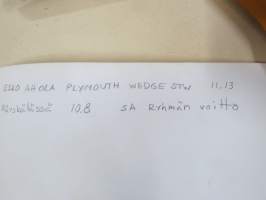 AHOLA PLYMOUTH WEDGE STW 11.13
10.8 SA Ryhmän voitto